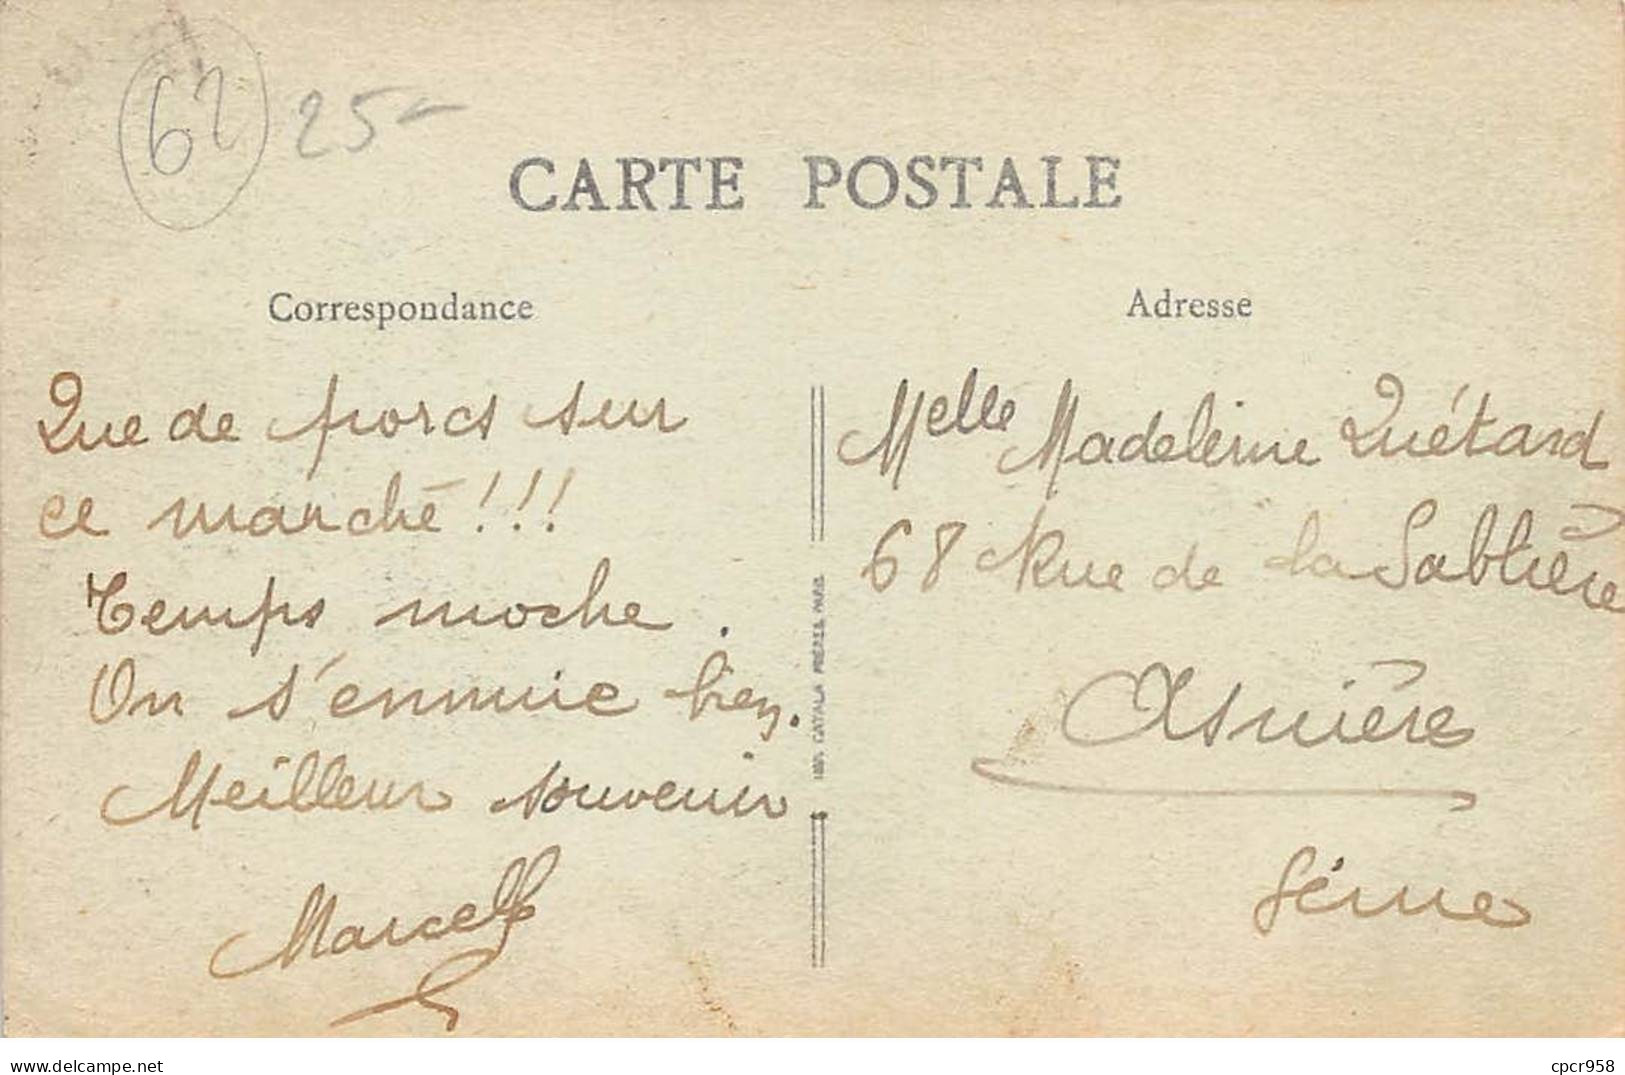 62 25-
CARTE POSTALE
Correspondance
Adresse
Que de porcs sur
ce marché!!!
Temps moche.
On s'ennuie bien.
Meilleur souvenir
Marcelle
Melle Madeleine Quétard
68 Rue de la Sablière
Asnières
Seine
CATALA FRÈRES PARIS
www.delcampe.net
cpcr958